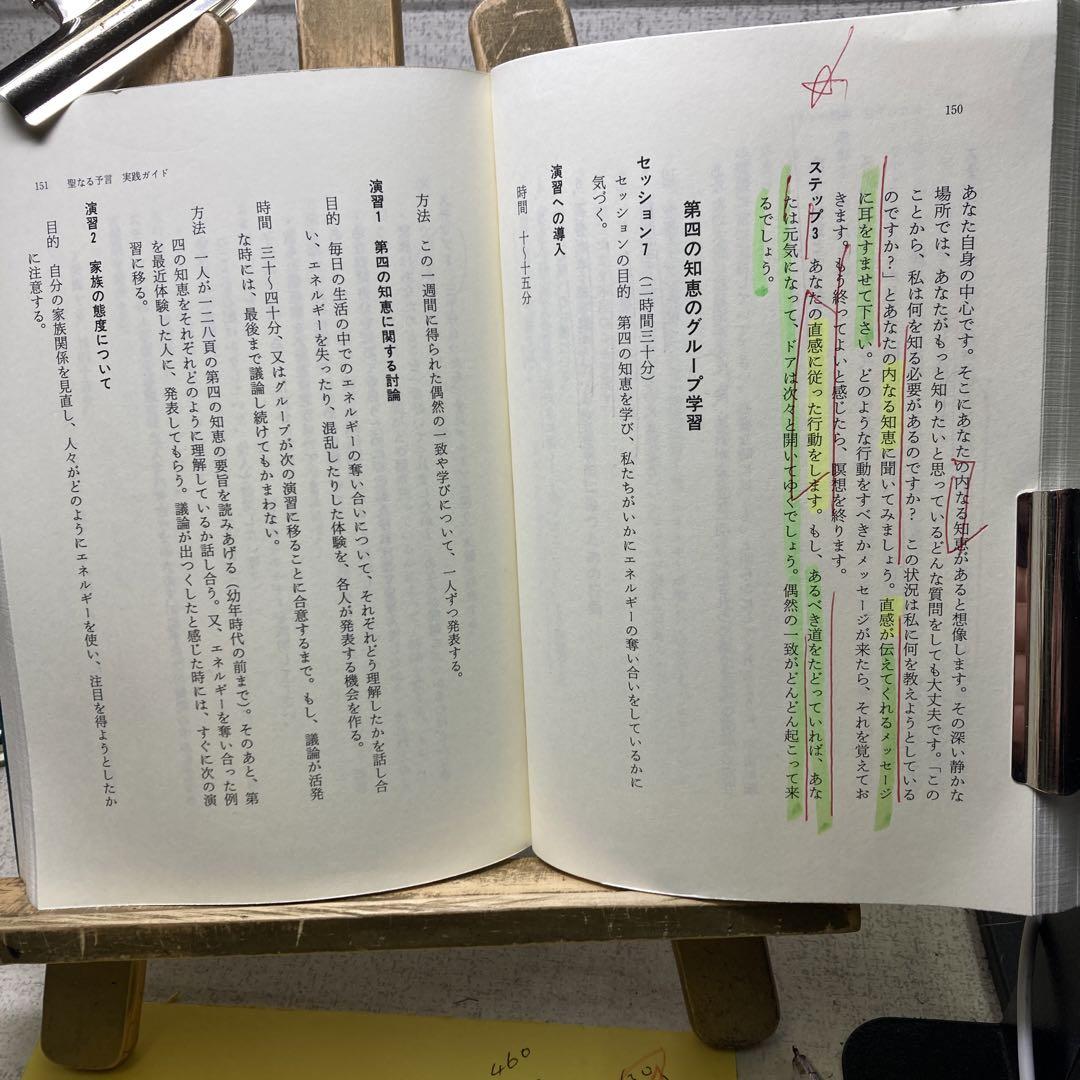 150
あなた自身の中心です。そこにあなたの内なる知恵があると想像します。その深い静かな
場所では、あなたがもっと知りたいと思っているどんな質問をしても大丈夫です。「この
ことから、私は何を知る必要があるのですか? この状況は私に何を教えようとしている
のですか?」とあなたの内なる知恵に聞いてみましょう。直感が伝えてくれるメッセージ
に耳をすませて下さい。どのような行動をすべきかメッセージが来たら、それを覚えてお
きます。もう終ってよいと感じたら、瞑想を終ります。
ステップ3 あなたの直感に従った行動をします。もし、あるべき道をたどっていれば、あな
たは元気になって、ドアは次々と開いてゆくでしょう。偶然の一致がどんどん起こって来
るでしょう。
第四の知恵のグループ学習
セッション7 (二時間三十分)
セッションの目的 第四の知恵を学び、私たちがいかにエネルギーの奪い合いをしているかに
気づく。
演習への導入
時間 十〜十五分
151 聖なる予言 実践ガイド
方法 この一週間に得られた偶然の一致や学びについて、一人ずつ発表する。
演習1 第四の知恵に関する討論
目的 毎日の生活の中でのエネルギーの奪い合いについて、それぞれどう理解したかを話し合
い、エネルギーを失ったり、混乱したりした体験を、各人が発表する機会を作る。
時間 三十〜四十分、又はグループが次の演習に移ることに合意するまで。もし、議論が活発
な時には、最後まで議論し続けてもかまわない。
方法 一人が一二八頁の第四の知恵の要旨を読みあげる(幼年時代の前まで)。そのあと、第
四の知恵をそれぞれどのように理解しているか話し合う。又、エネルギーを奪い合った例
を最近体験した人に、発表してもらう。議論が出つくしたと感じた時には、すぐに次の演
習に移る。
演習2 家族の態度について
目的 自分の家族関係を見直し、人々がどのようにエネルギーを使い、注目を得ようとしたか
に注意する。
460